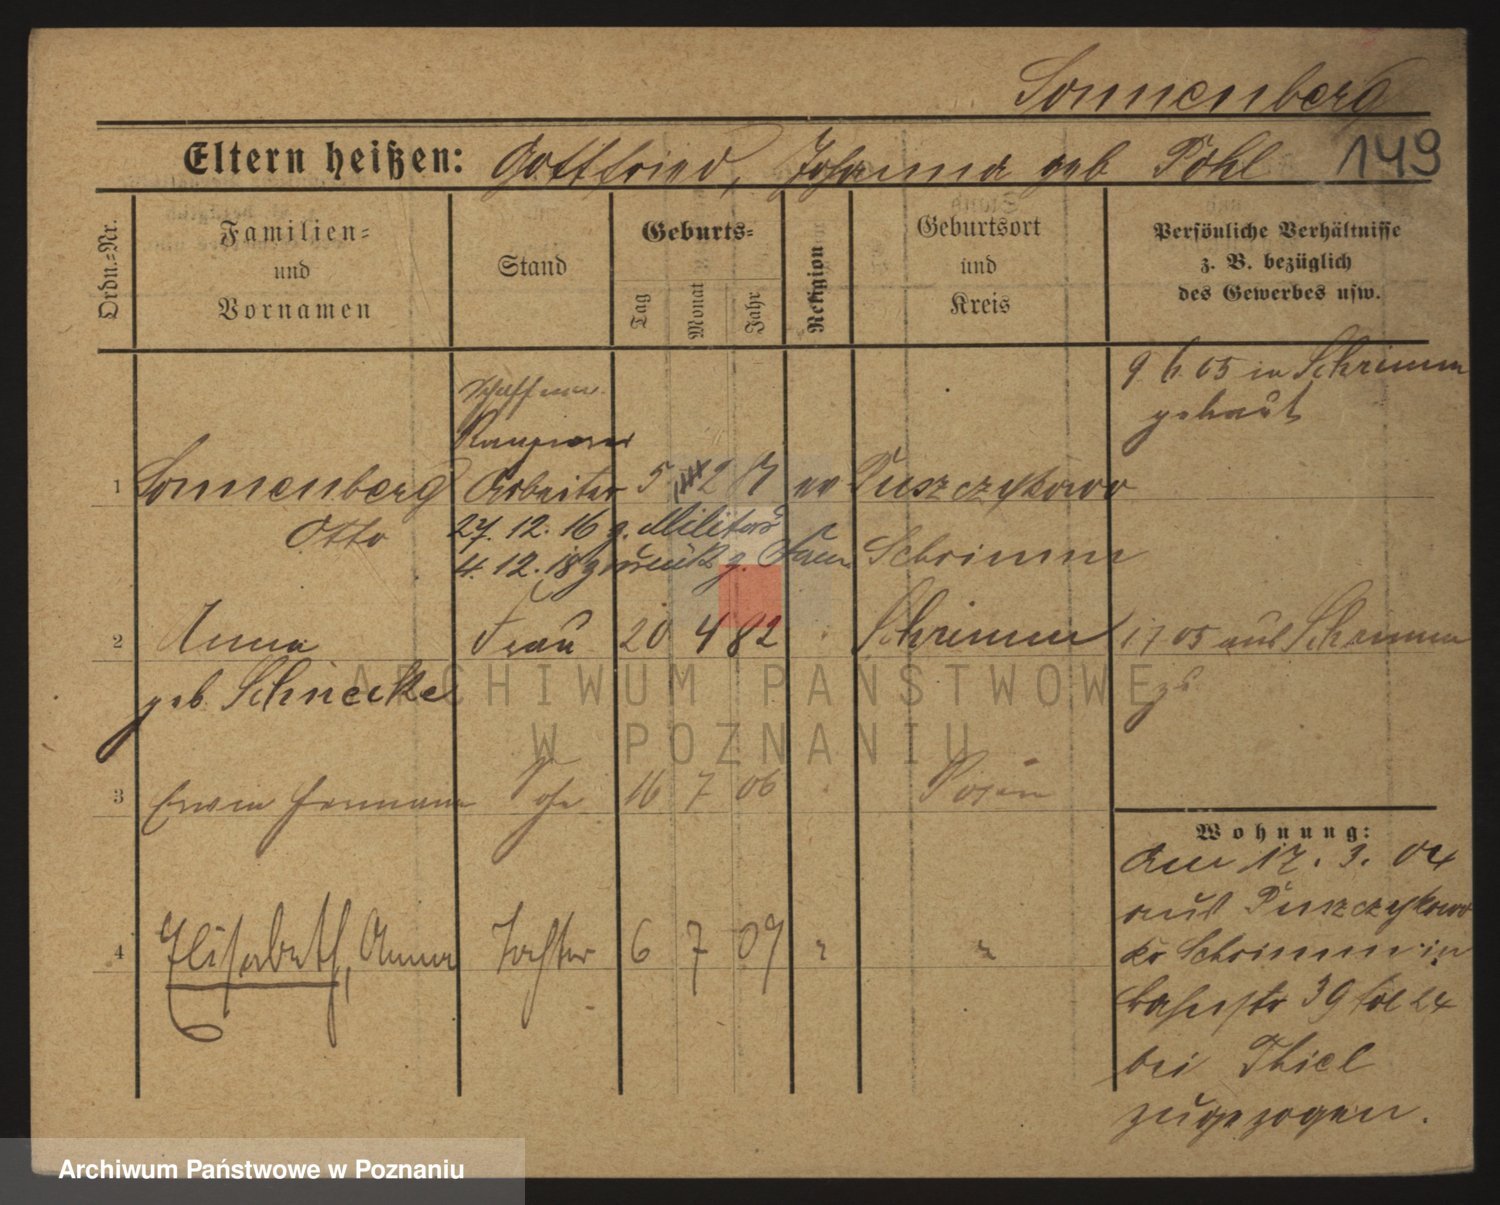 Sonnenberg
Eltern heißen: Gottfried, Johanna geb Pohl 149
Ordn.-Nr.
Familien- und Vornamen
Stand
Geburts-
Tag Monat Jahr
Religion
Geburtsort und Kreis
Persönliche Verhältnisse
z. B. bezüglich
des Gewerbes usw.
9. 6. 05 in Schrimm
getraut
Schaffner
Rangierer
1 Sonnenberg Arbeiter 5 2 ev Puszczykowo
Otto 27. 12. 16 z. Militär Schrimm
4. 12. 18 zurück z. Fam.
2 Anna Frau 20 4 82 Schrimm 1 7 05 aus Schrimm
geb. Schiecke zu
ARCHIWUM PAŃSTWOWE
W POZNANIU
3 Erwin Hermann Sohn 16 7 06 Posen
4 Elisabeth, Anna Tochter 6 7 09 "
Wohnung:
Am 17. 3. 04
aus Puszczykowo
Kr Schrimm in
Bahnstr 39 bei
Thiel
zugezogen.
Archiwum Państwowe w Poznaniu